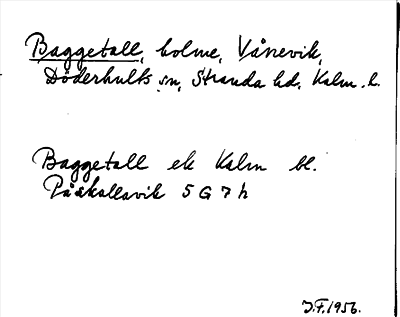 Baggetall, holme, Vånevik,
Döderhults sn, Stranda hd, Kalm. l.
Baggetall ek Kalm bl.
Påskallavik 5 G 7 h
J.F. 1956.